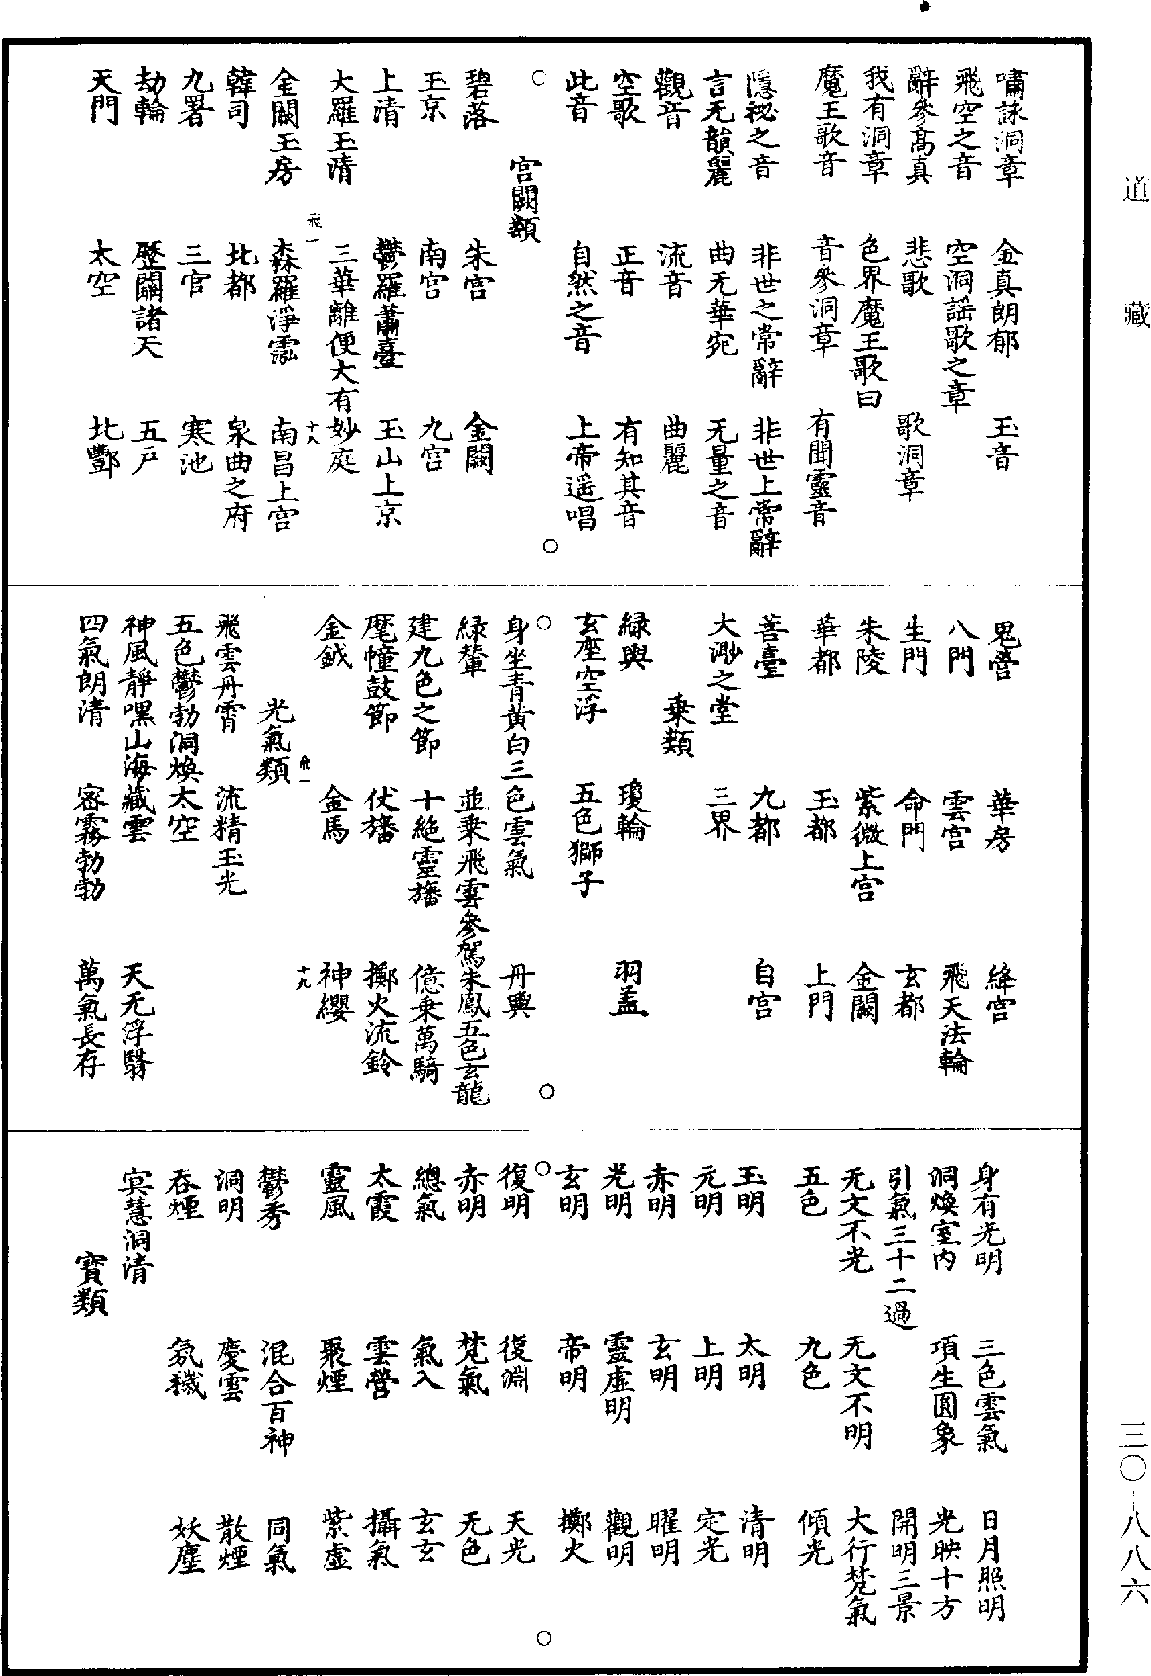 道藏
嘯詠洞章　金真朗郁　玉音
飛空之音　空洞謠歌之章
辭參高真　悲歌　歌洞章
我有洞章　色界魔王歌曰
魔王歌音　音參洞章　有聞靈音
隱祕之音　非世之常辭　非世上常辭
言无韻麗　曲无華宛　无量之音
觀音　流音　曲麗
空歌　正音　有知其音
此音　自然之音　上帝遥唱
宫闕類
碧落　朱宫　金闕
玉京　南宫　九宫
上清　鬱羅蕭臺　玉山上京
大羅玉清　三華離便大有妙庭
飛一　十八
金闕玉房　森羅淨泓　南昌上宫
韓司　北都　泉曲之府
九署　三官　寒池
劫輪　歷關諸天　五户
天門　太空　北酆
鬼營　華房　絳宫
八門　雲宫　飛天法輪
生門　命門　玄都
朱陵　紫微上宫　金闕
華都　玉都　上門
菩臺　九都　自宫
大渺之堂　三界
乗類
緑輿　瓊輪　羽盖
玄座空浮　五色獅子
身坐青黄白三色雲氣　丹輿
緑輦　並乗飛雲參駕朱鳳五色玄龍
建九色之節　十絶靈旛　億乗萬騎
麾幢鼓節　伏旛　擲火流鈴
金鉞　金馬　神纓
飛一　十九
光氣類
飛雲丹霄　流精玉光
五色鬱勃洞煥太空
神風靜嘿山海藏雲　天无浮翳
四氣朗清　密霧勃勃　萬氣長存
身有光明　三色雲氣　日月照明
洞煥室内　項生圓象　光映十方
引氣三十二過　開明三景
无文不光　无文不明　大行梵氣
五色　九色　傾光
玉明　太明　清明
元明　上明　定光
赤明　玄明　曜明
光明　靈虚明　觀明
玄明　帝明　擲火
復明　復淵　天光
赤明　梵氣　无色
總氣　氣入　玄玄
太霞　雲營　攝氣
靈風　聚煙　紫虚
鬱秀　混合百神　同氣
洞明　慶雲　散煙
吞煙　氛穢　妖塵
冥慧洞清
寳類
三〇-八八六